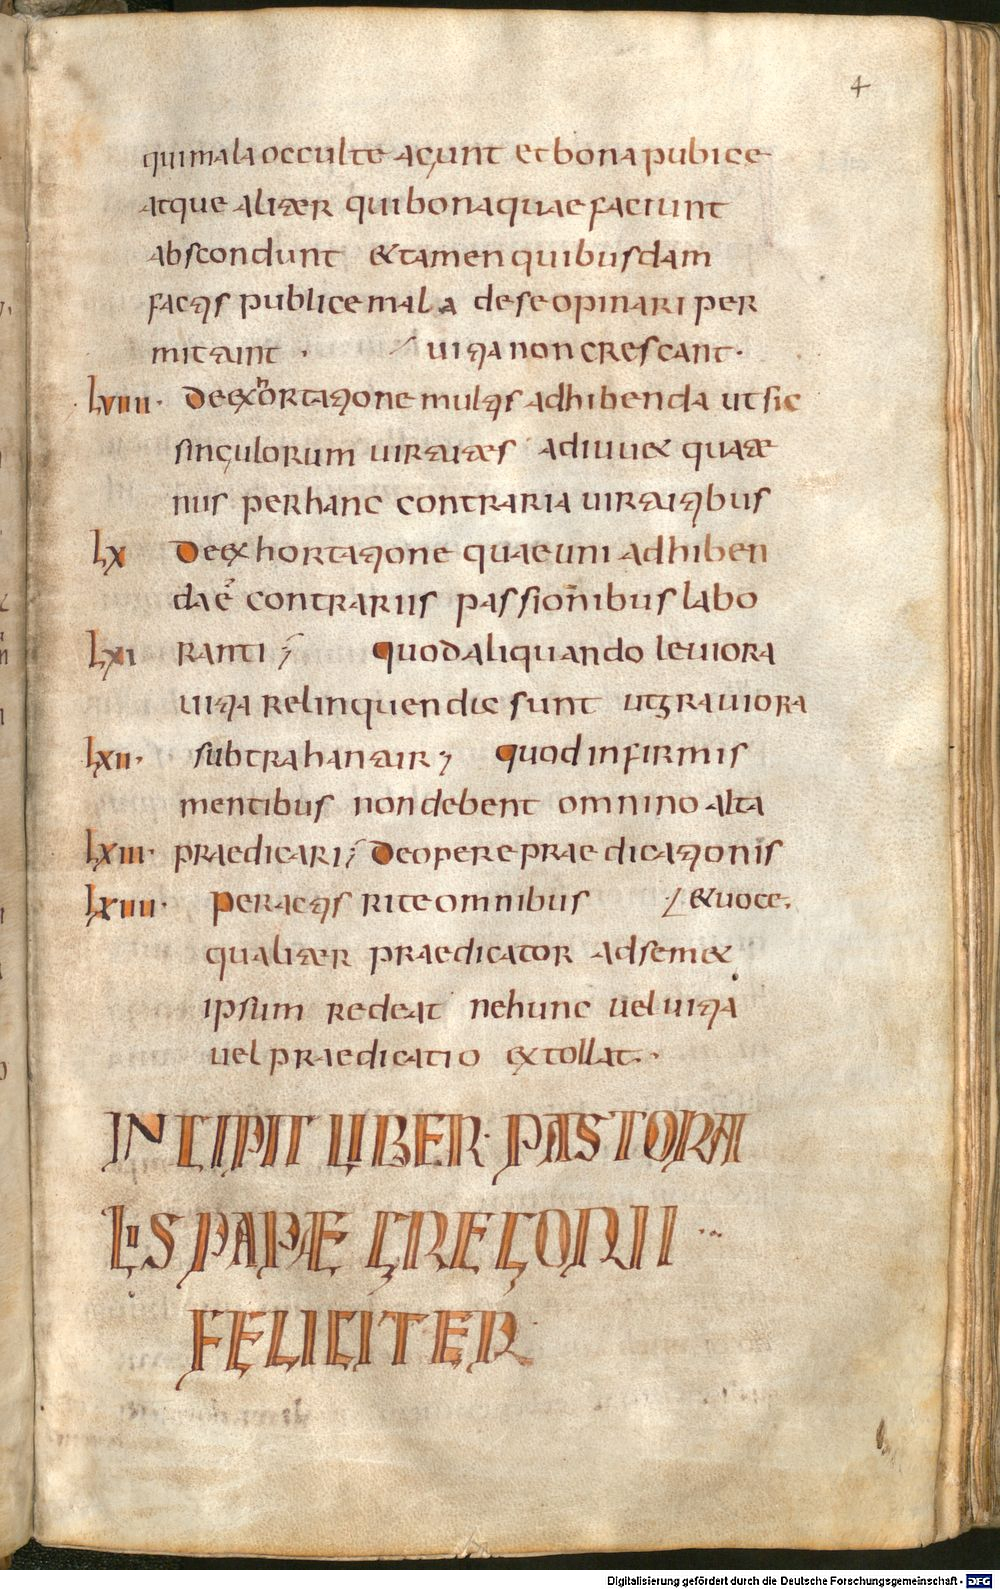 4
qui mala occulte agunt et bona pubice
atque aliter qui bona quae faciunt
abscondunt & tamen quibusdam
factis publice mala de se opinari per
mittunt · / uitia non crescant ·
LVIIII · De exhortatione multis adhibenda ut sic
singulorum uirtutes adiuu& quate
nus per hanc contraria uirtutibus
LX De exhortatione quae uni adhiben
da e contrariis passionibus labo
LXI ranti ; quod aliquando leuiora
uitia relinquende sunt ut grauiora
LXII · subtrahantur ; quod infirmis
mentibus non debent omnino alta
LXIII · praedicari ; De opere praedicationis
LXIIII · Peractis rite omnibus / & uoce .
qualiter praedicator ad sem&
ipsum redeat ne hunc uel uita
uel praedicatio extollat ·
INCIPIT LIBER · PASTORA
LIS PAPAE GREGORII ··
FELICITER
Digitalisierung gefördert durch die Deutsche Forschungsgemeinschaft - DFG